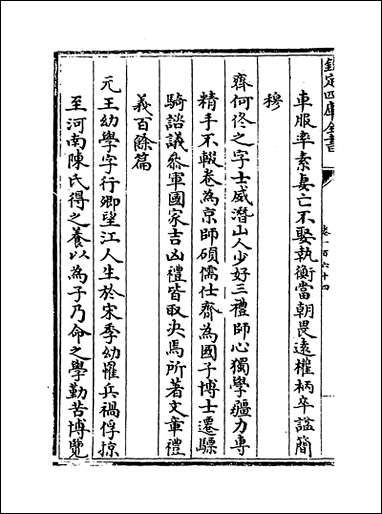 欽定四庫全書
卷一百六十四
車服率素妻亡不娶執衡當朝畏遠權柄卒諡簡
穆
齊何佟之字士威潛山人少好三禮師心獨學彊力專
精手不輟卷為京師碩儒仕齊為國子博士遷驃
騎諮議參軍國家吉凶禮皆取决焉所著文章禮
義百餘篇
元王幼學字行卿望江人生於宋季幼罹兵禍俘掠
至河南陳氏得之養以為子乃命之學勤苦博覽